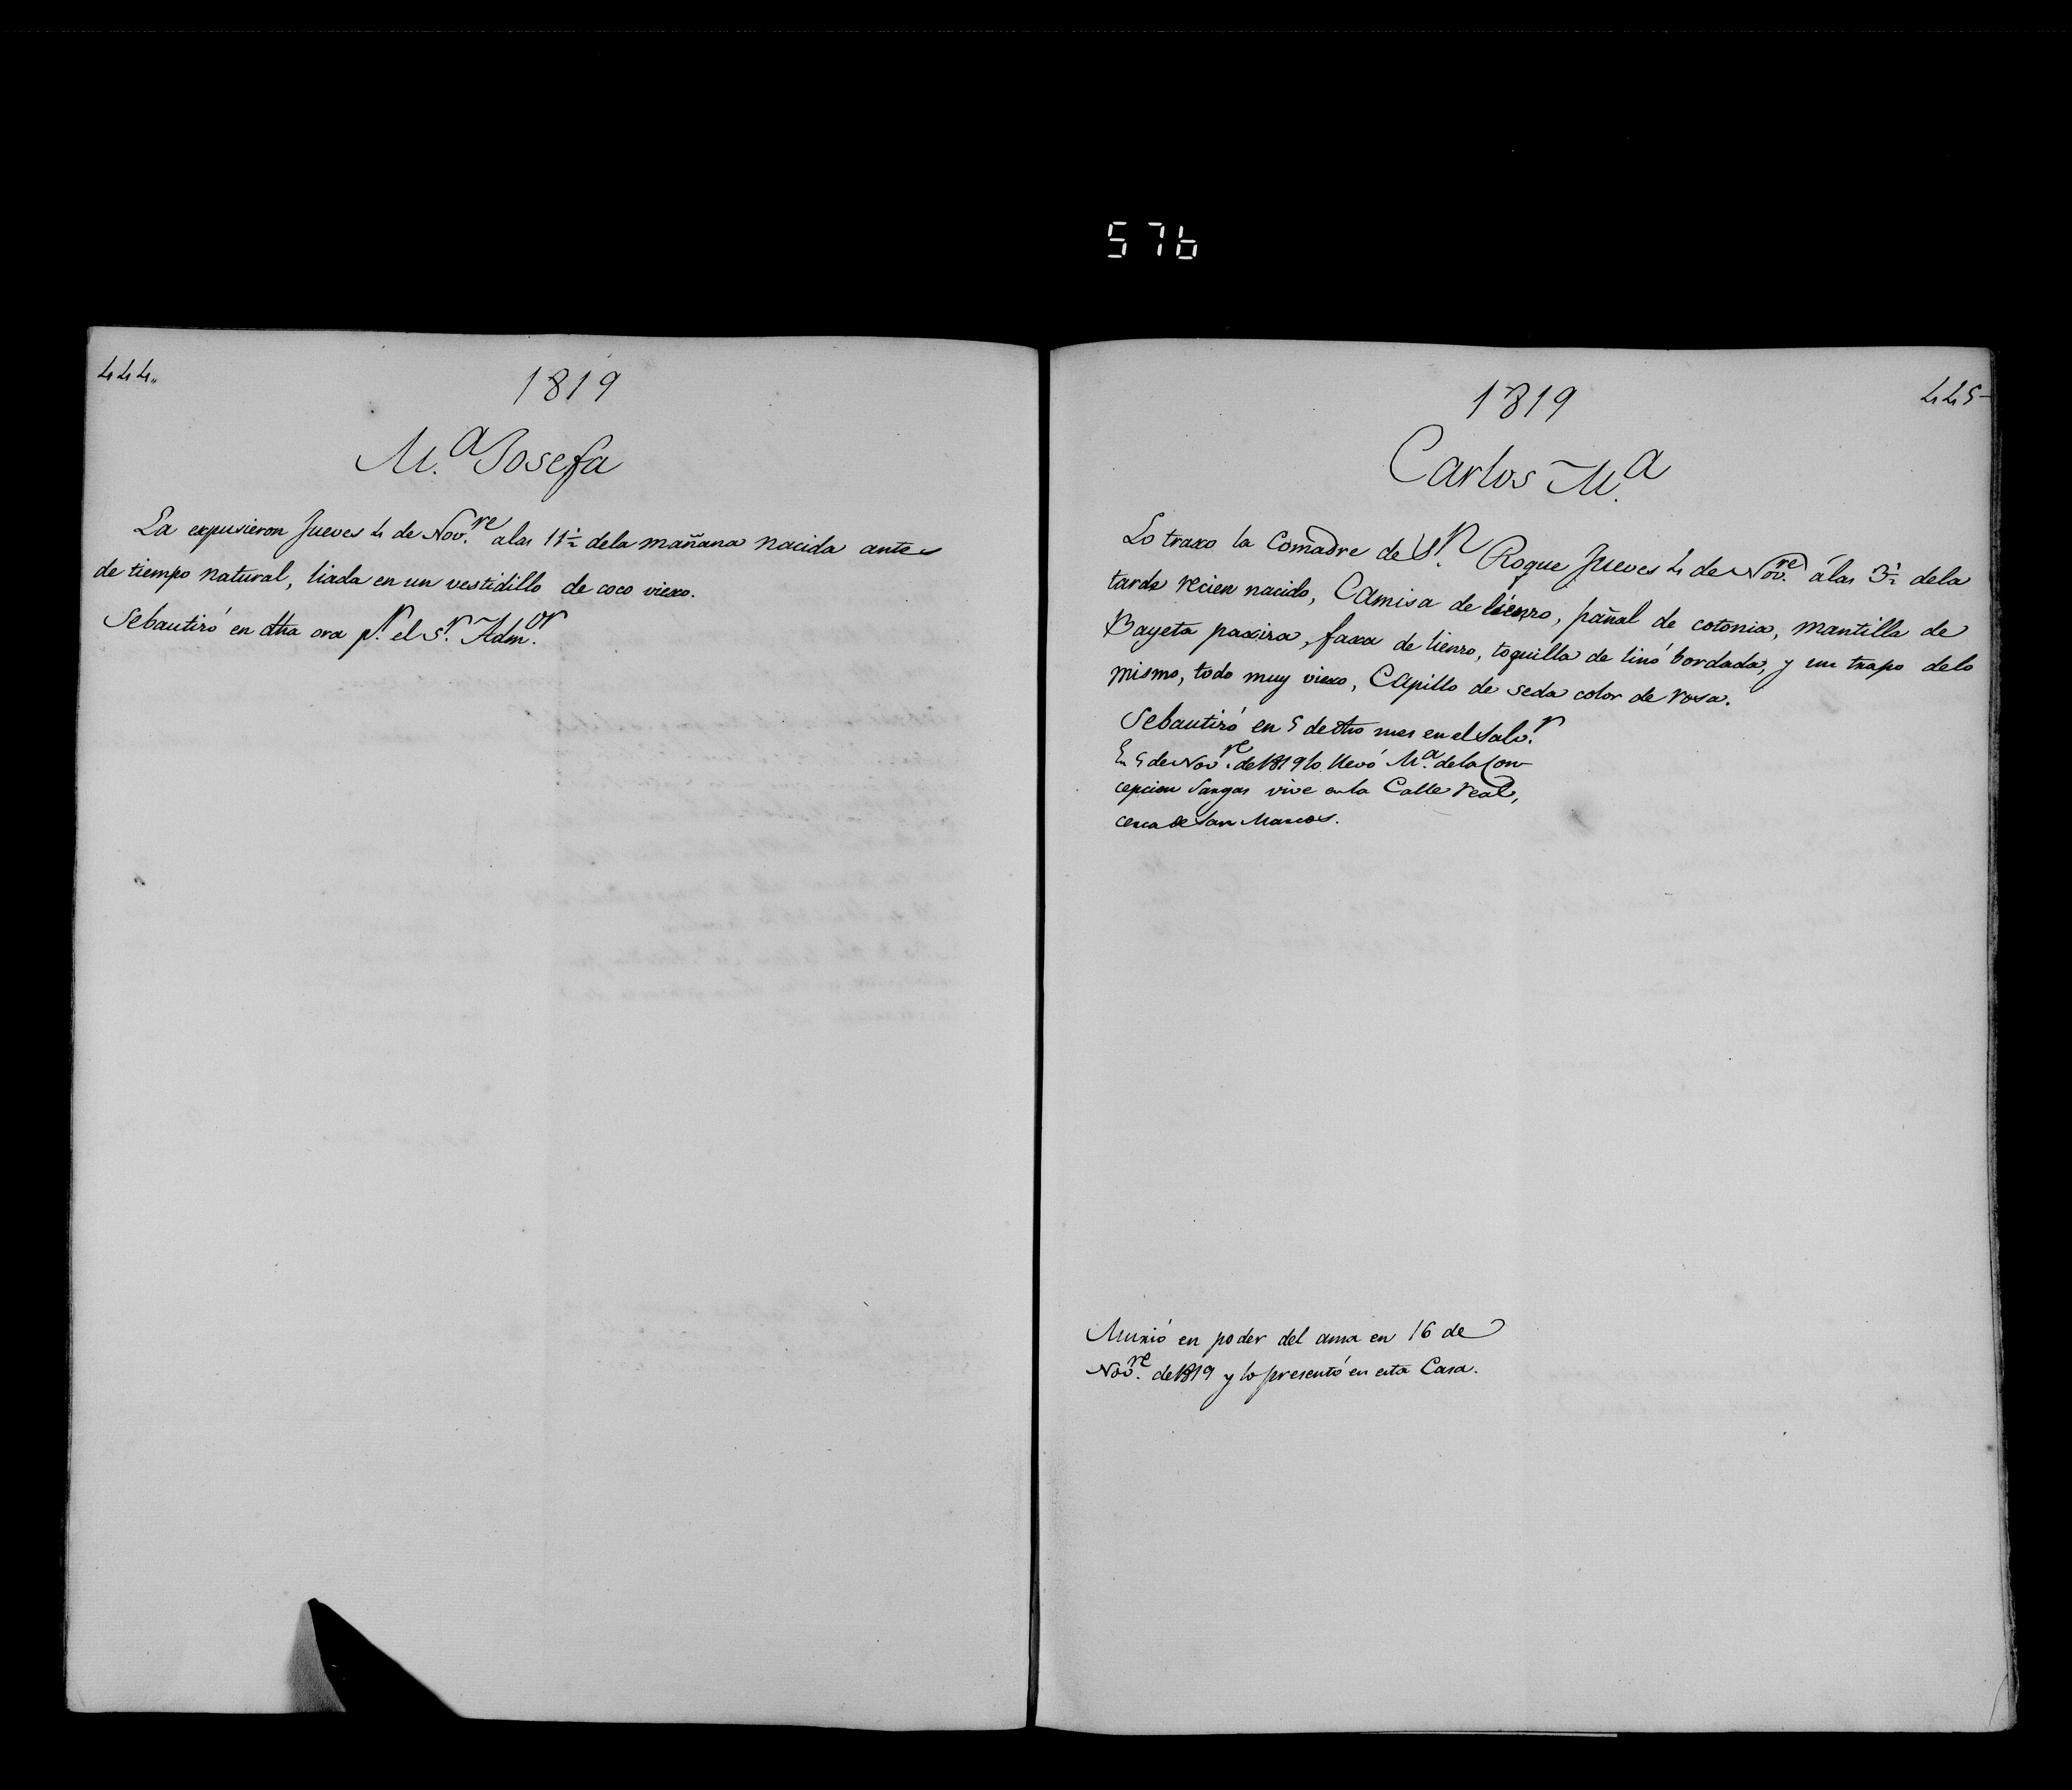 576
444"
1819
M.ª Josefa
La expusieron Jueves 4 de Nov.re alas 11½ dela mañana nacida antes
de tiempo natural, liada en un vestidillo de coco viexo.
Sebautizó en dha ora p.r el S.r Adm.or
1819
445
Carlos M.ª
Lo traxo la Comadre de S.n Roque Jueves 4 de Nov.re álas 3½ dela
tarde recien nacido, Camisa de lienzo, pañal de cotonia, mantilla de
Bayeta paxiza, faxa de lienzo, toquilla de linó bordada, y un trapo delo
mismo, todo muy viexo, Capillo de seda color de rosa.
Sebautizó en 5 de dho mes en el Salv.r
En 5 de Nov.re de 1819 lo llevó M.ª dela Con-
cepcion Vargas vive en la Calle real,
cerca de San Marcos.
Murió en poder del ama en 16 de
Nov.re de 1819 y lo presentó en esta Casa.